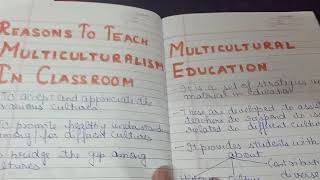 REASONS TO TEACH
MULTICULTURALISM
IN CLASSROOM
To accept and appreciate the
various cultures.
To promote healthy understand
among for different cultures
bridge the gap among
cultures
MULTICULTURAL
EDUCATION
It is a set of strategies
material in education
These are developed to assist
teachers to respond to
related to different
It provides students with
about
Contribution
diverse